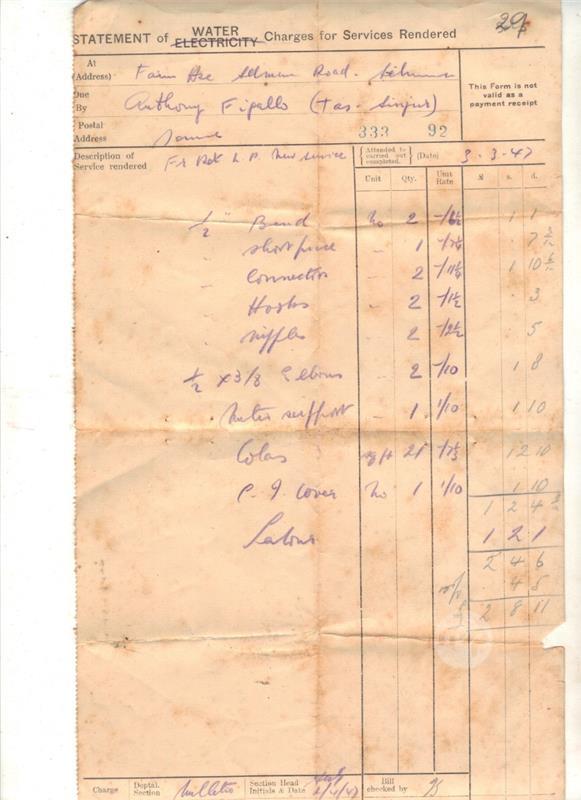 29
STATEMENT of WATER ELECTRICITY Charges for Services Rendered
At (Address) Farm Hse Road.
This Form is not valid as a payment receipt
Due By Anthony Figallo (Tas-Sinjur)
Postal Address Same
333 92
Description of Service rendered
New Service
Attended to carried out completed. (Date) 3.3.47
Unit Qty. Unit Rate £ s. d.
1/2" Bend No 2 -/6½ 1 1
" Short piece " 1
" Connector " 2 1 10
" Hooks " 2 -/1½ . 3
" Nipples " 2 -/2½ . 5
1/2 x 3/8 Elbows " 2 -/10 1 8
Meter support " 1 1/10 1 10
Colas 21 12 10
C.I. Cover No 1 1/10 1 10
1 2 4
Labour 1 2 1
2 4 6
4 5
£ 2 8 11
Charge Deptal. Section
Section Head Initials & Date
Bill checked by